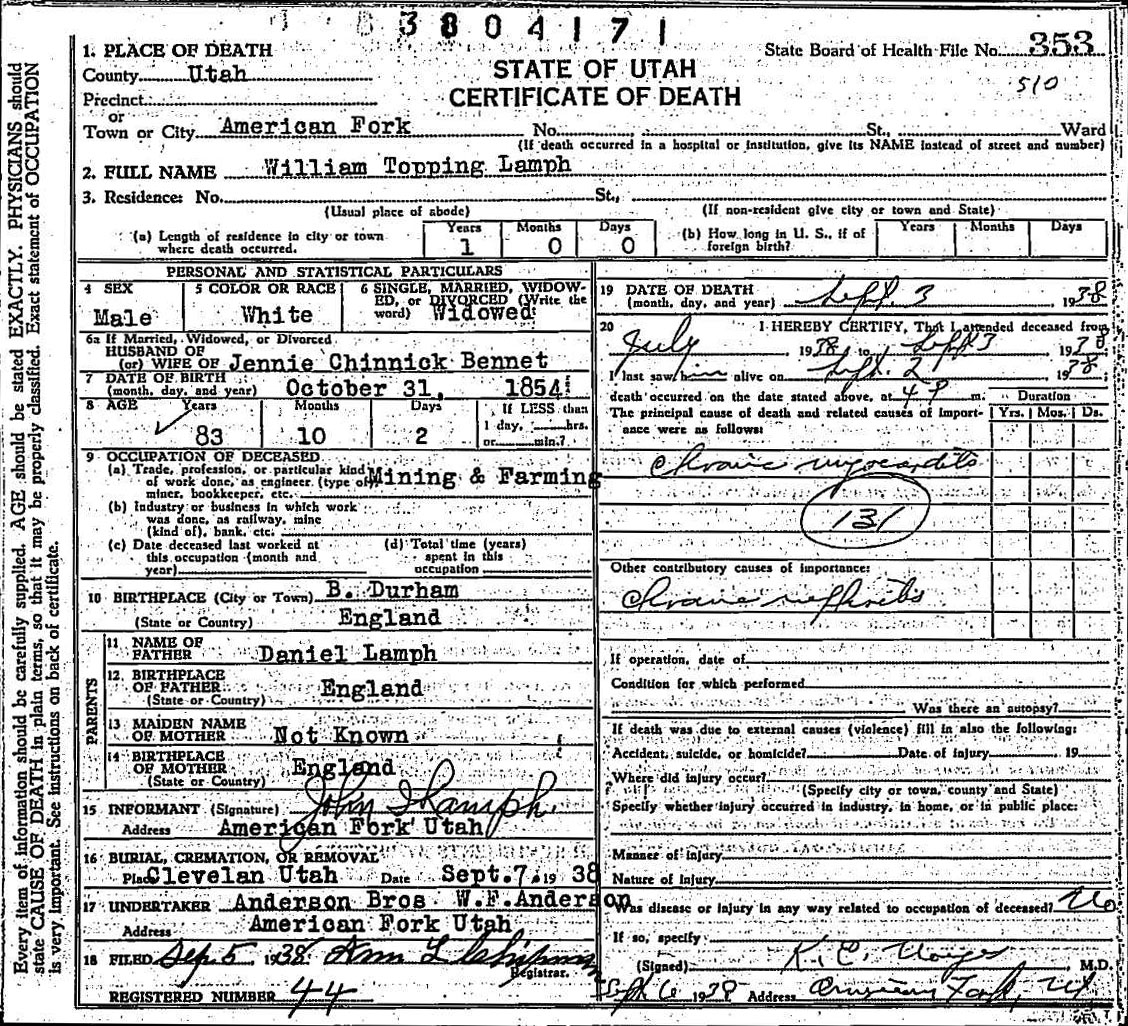 3804171
State Board of Health File No. 353
510
STATE OF UTAH
CERTIFICATE OF DEATH
1. PLACE OF DEATH
County Utah
Precinct
or
Town or City American Fork No. St., Ward
(If death occurred in a hospital or institution, give its NAME instead of street and number)
2. FULL NAME William Topping Lamph
3. Residence: No. St.,
(Usual place of abode) (If non-resident give city or town and State)
(a) Length of residence in city or town where death occurred. Years 1 Months 0 Days 0
(b) How long in U. S., if of foreign birth? Years Months Days
PERSONAL AND STATISTICAL PARTICULARS
4 SEX Male
5 COLOR OR RACE White
6 SINGLE, MARRIED, WIDOWED, or DIVORCED (Write the word) Widowed
6a If Married, Widowed, or Divorced
HUSBAND OF
(or) WIFE OF Jennie Chinnick Bennet
7 DATE OF BIRTH
(month, day, and year) October 31, 1854
8 AGE Years 83 Months 10 Days 2 If LESS than 1 day, hrs. or min.?
9 OCCUPATION OF DECEASED
(a) Trade, profession, or particular kind of work done, as engineer (type of) miner, bookkeeper, etc. Mining & Farming
(b) Industry or business in which work was done, as railway, mine (kind of), bank, etc.
(c) Date deceased last worked at this occupation (month and year)
(d) Total time (years) spent in this occupation
10 BIRTHPLACE (City or Town) B. Durham
(State or Country) England
PARENTS
11 NAME OF FATHER Daniel Lamph
12 BIRTHPLACE OF FATHER (State or Country) England
13 MAIDEN NAME OF MOTHER Not Known
14 BIRTHPLACE OF MOTHER (State or Country) England
15 INFORMANT (Signature) John Lamph
Address American Fork Utah
16 BURIAL, CREMATION, OR REMOVAL
Place Clevelan Utah Date Sept. 7, 19 38
17 UNDERTAKER Anderson Bros W.F. Anderson
Address American Fork Utah
18 FILED Sep. 5 1938
Registrar.
REGISTERED NUMBER 44
19 DATE OF DEATH
(month, day, and year) Sept. 3 1938
20 I HEREBY CERTIFY, That I attended deceased from
July 1938 to Sept 3 1938
I last saw him alive on Sept. 2 1938
death occurred on the date stated above, at 4 P m.
Duration
The principal cause of death and related causes of importance were as follows: Yrs. Mos. Ds.
Chronic myocarditis
131
Other contributory causes of importance:
Chronic nephritis
If operation, date of
Condition for which performed
Was there an autopsy?
If death was due to external causes (violence) fill in also the following:
Accident, suicide, or homicide? Date of injury 19
Where did injury occur?
(Specify city or town, county and State)
Specify whether injury occurred in industry, in home, or in public place:
Manner of injury
Nature of injury
Was disease or injury in any way related to occupation of deceased? No
If so, specify
(Signed) M.D.
Sept 6 1938 Address American Fork, Ut
Every item of information should be carefully supplied. AGE should be stated EXACTLY. PHYSICIANS should
state CAUSE OF DEATH in plain terms, so that it may be properly classified. Exact statement of OCCUPATION
is very important. See instructions on back of certificate.